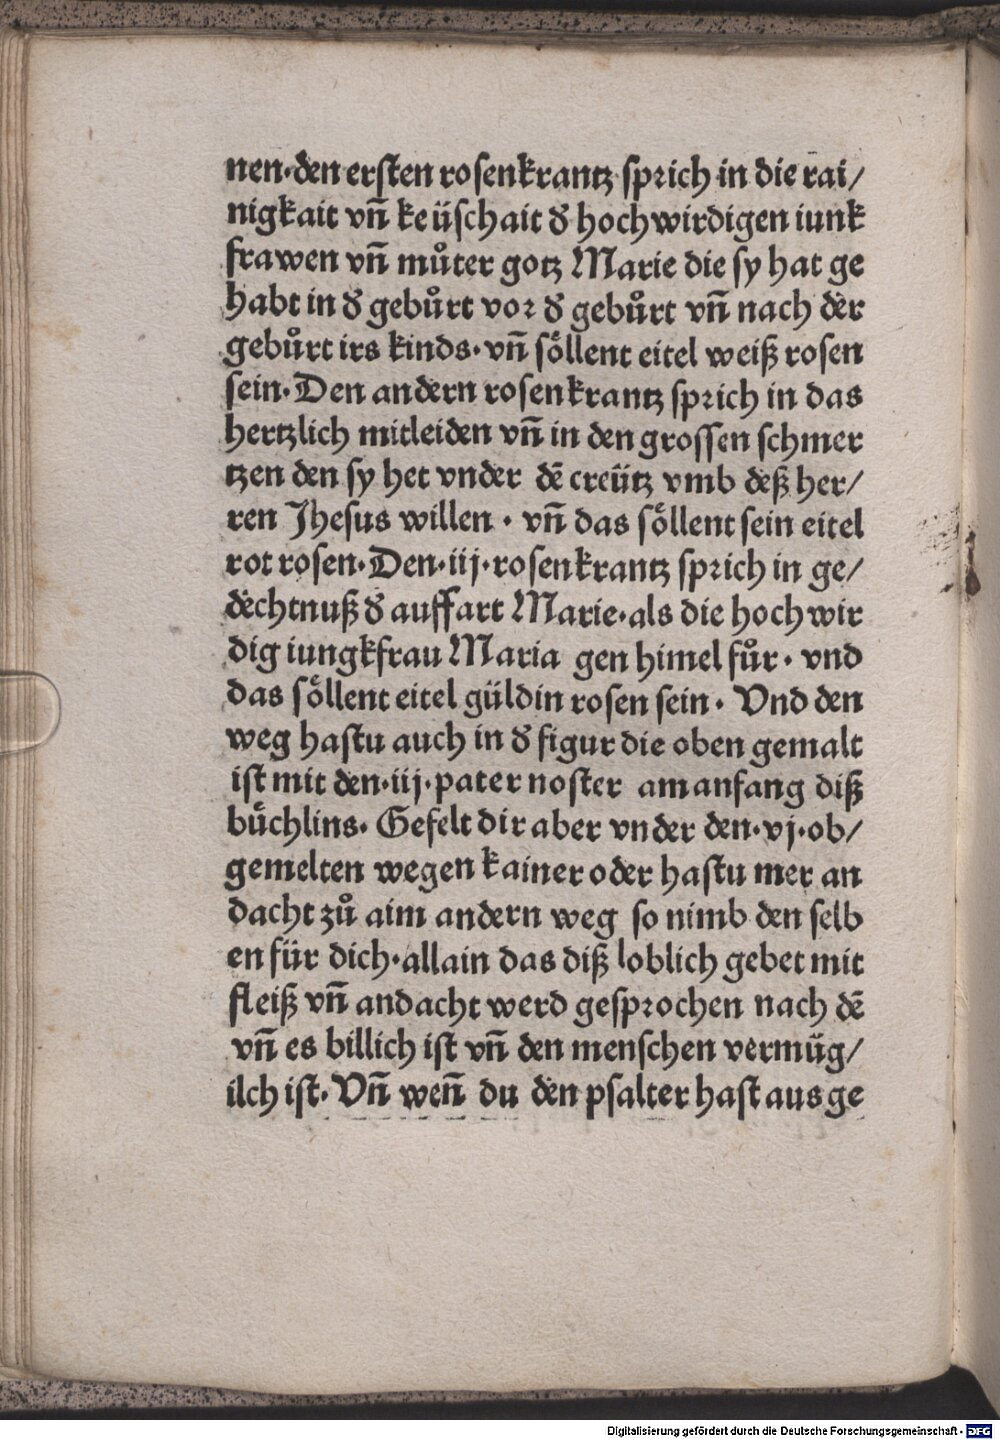 nen·den ersten rosenkrantz sprich in die rai/
nigkait vn̄ keüschait d̕ hochwirdigen iunk
frawen vn̄ můter gotz Marie die sy hat ge
habt in d̕ gebůrt vor d̕ gebůrt vn̄ nach der
gebůrt irs kinds·vn̄ soͤllent eitel weiß rosen
sein·Den andern rosenkrantz sprich in das
hertzlich mitleiden vn̄ in den grossen schmer
tzen den sy het vnder dē creütz vmb deß her/
ren Jhesus willen·vn̄ das soͤllent sein eitel
rot rosen·Den·iij·rosenkrantz sprich in ge/
dechtnuß d̕ auffart Marie·als die hochwir
dig iungkfrau Maria gen himel fůr·vnd
das soͤllent eitel güldin rosen sein·Vnd den
weg hastu auch in d̕ figur die oben gemalt
ist mit den·iij·pater noster am anfang diß
buͤchlins·Gefelt dir aber vnder den·vj·ob/
gemelten wegen kainer oder hastu mer an
dacht zů aim andern weg so nimb den selb
en für dich·allain das diß loblich gebet mit
fleiß vn̄ andacht werd gesprochen nach dē
vn̄ es billich ist vn̄ den menschen vermüg/
ilch ist·Vn̄ wen̄ du den psalter hast ausge
Digitalisierung gefördert durch die Deutsche Forschungsgemeinschaft - DFG